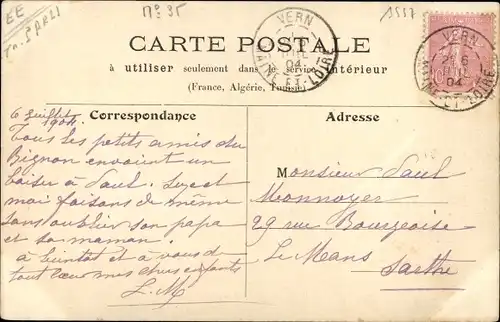 EE
N° 35
3557
CARTE POSTALE
à utiliser seulement dans le service intérieur
(France, Algérie, Tunisie)
VERN
04
MAINE-ET-LOIRE
VERN
04
MAINE-ET-LOIRE
Correspondance
6 juillet
1904.
Tous les petits amis du
Bignon envoient un
baiser à Paul. et
moi faisons de même
sans oublier son papa
et sa maman.
à bientôt et à vous de
tout cœur mes chers enfants
L. M
Adresse
Monsieur Paul
Monnoyer
29 rue Bourgeoise
Le Mans
Sarthe